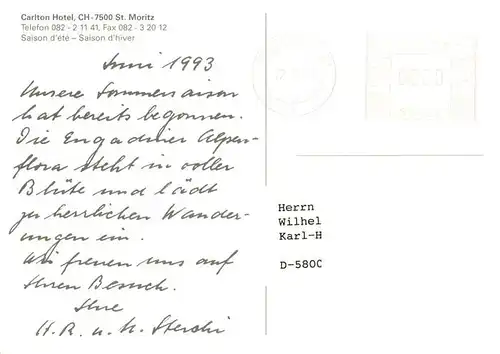 Carlton Hotel, CH-7500 St. Moritz
Telefon 082 - 2 11 41, Fax 082 - 3 20 12
Saison d'été – Saison d'hiver
Juni 1993
Unsere Sommersaison
hat bereits begonnen.
Die Engadiner Alpen-
flora steht in voller
Blüte und lädt
zu herrlichen Wander-
ungen ein.
Wir freuen uns auf
Ihren Besuch.
Ihre
H.R. u. M. Sterchi
Herrn
Wilhel
Karl-H
D-580C